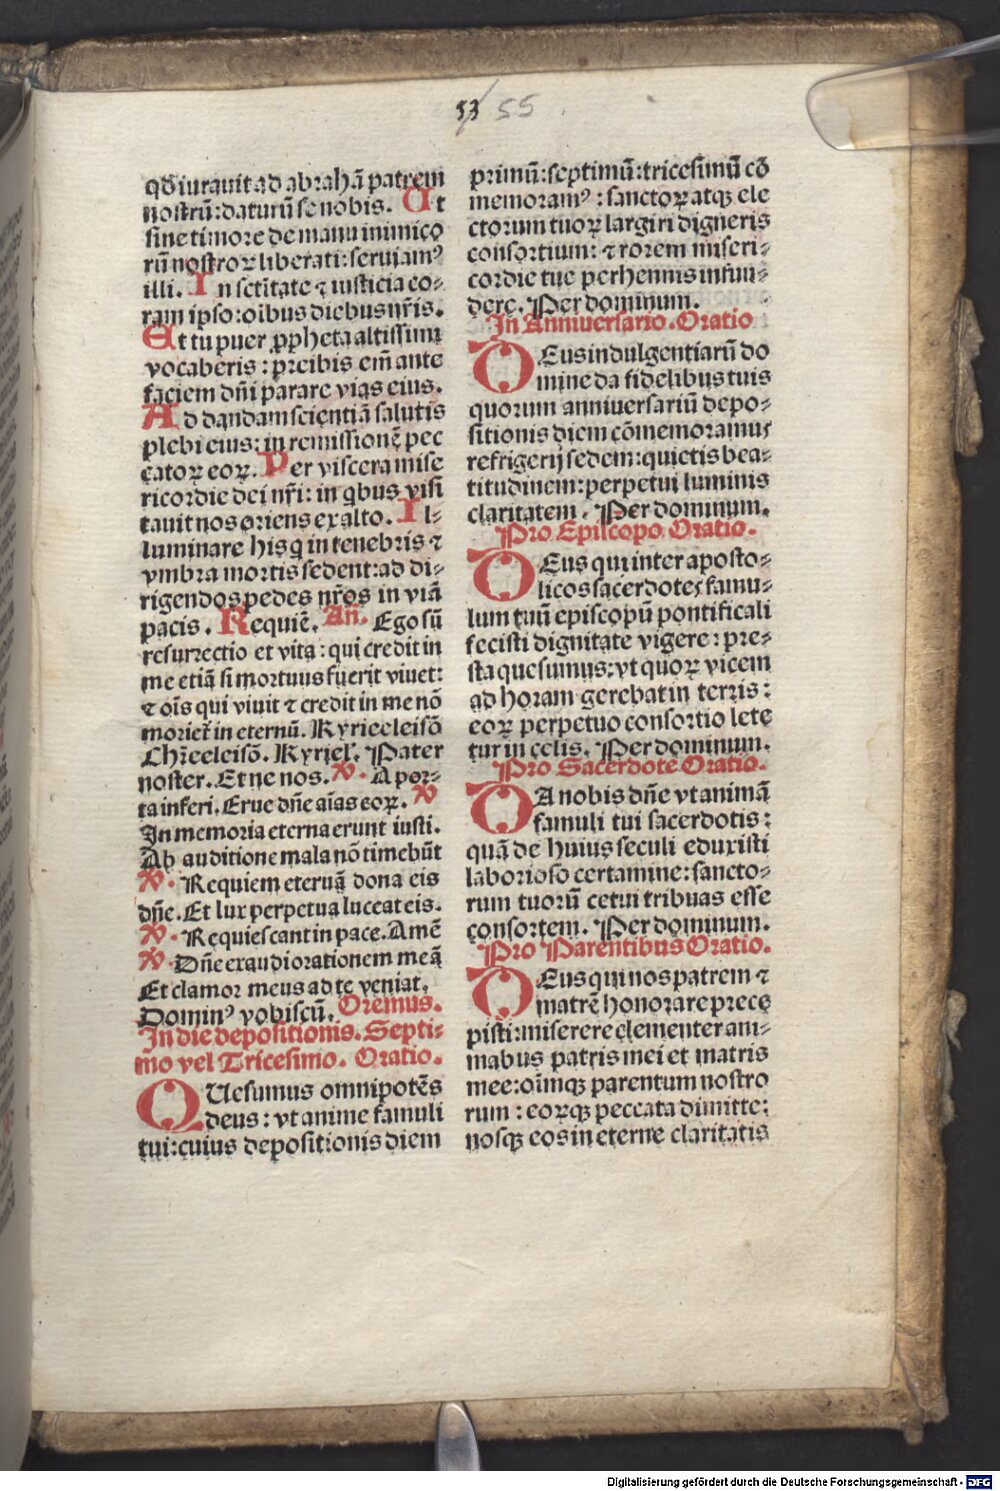 53 55
qď iurauit ad abrahā patrem
nostrū: daturū se nobis. Ut
sine timore de manu inimico
rū nostroꝝ liberati: seruiamꝰ
illi. In sctitate ⁊ iusticia co⸗
ram ipso: oibus diebus nr̄is.
Et tu puer ꝓpheta altissimi
vocaberis: preibis em̄ ante
faciem dn̄i parare vias eius.
Ad dandam scientiā salutis
plebi eius: in remissionē pec
catoꝝ eoꝝ. Per viscera mise
ricordie dei nr̄i: in qbus visi
tauit nos oriens ex alto. Il⸗
luminare his q in tenebris ⁊
vmbra mortis sedent: ad di⸗
rigendos pedes nr̄os in viā
pacis. Requiē. An̄. Ego sū
resurrectio et vita: qui credit in
me etiā si mortuus fuerit viuet:
⁊ oīs qui viuit ⁊ credit in me nō
morieť in eternū. Kyrieeleisō
Chr̄eeleisō. Kyriel'. Pater
noster. Et ne nos. ℣. A por⸗
ta inferi. Erue dn̄e aīas eoꝝ. ℣
In memoria eterna erunt iusti.
Ab auditione mala nō timebūt
℣. Requiem eternā dona eis
dn̄e. Et lux perpetua luceat eis.
℣. Requiescant in pace. Amē
℣. Dn̄e exaudi orationem meā
Et clamor meus ad te veniat.
Dominꝰ vobiscū. Oremus.
In die depositionis. Septi⸗
mo vel Tricesimo. Oratio.
QUesumus omnipotēs
deus: vt anime famuli
tui: cuius depositionis diem
primū: septimū: tricesimū cō
memoramꝰ: sanctoꝝ atqꝫ ele
ctorum tuoꝝ largiri digneris
consortium: ⁊ rorem miseri⸗
cordie tue perhennis infun⸗
dere. Per dominum.
In Anniuersario. Oratio
DEus indulgentiarū do
mine da fidelibus tuis
quorum anniuersariū depo⸗
sitionis diem cōmemoramus
refrigerij sedem: quietis bea⸗
titudinem: perpetui luminis
claritatem. Per dominum.
Pro Episcopo. Oratio.
DEus qui inter aposto⸗
licos sacerdotes famu⸗
lum tuū episcopū pontificali
fecisti dignitate vigere: pre⸗
sta quesumus: vt quoꝝ vicem
ad horam gerebat in terris:
eoꝝ perpetuo consortio lete
tur in celis. Per dominum.
Pro Sacerdote Oratio.
DA nobis dn̄e vt animā
famuli tui sacerdotis:
quā de huius seculi eduxisti
laborioso certamine: sancto⸗
rum tuorū cetui tribuas esse
consortem. Per dominum.
Pro Parentibus Oratio.
DEus qui nos patrem ⁊
matrē honorare prece
pisti: miserere clementer ani⸗
mabus patris mei et matris
mee: oīmqꝫ parentum nostro
rum: eoꝝqꝫ peccata dimitte:
nosqꝫ eos in eterne claritatis
Digitalisierung gefördert durch die Deutsche Forschungsgemeinschaft - DFG